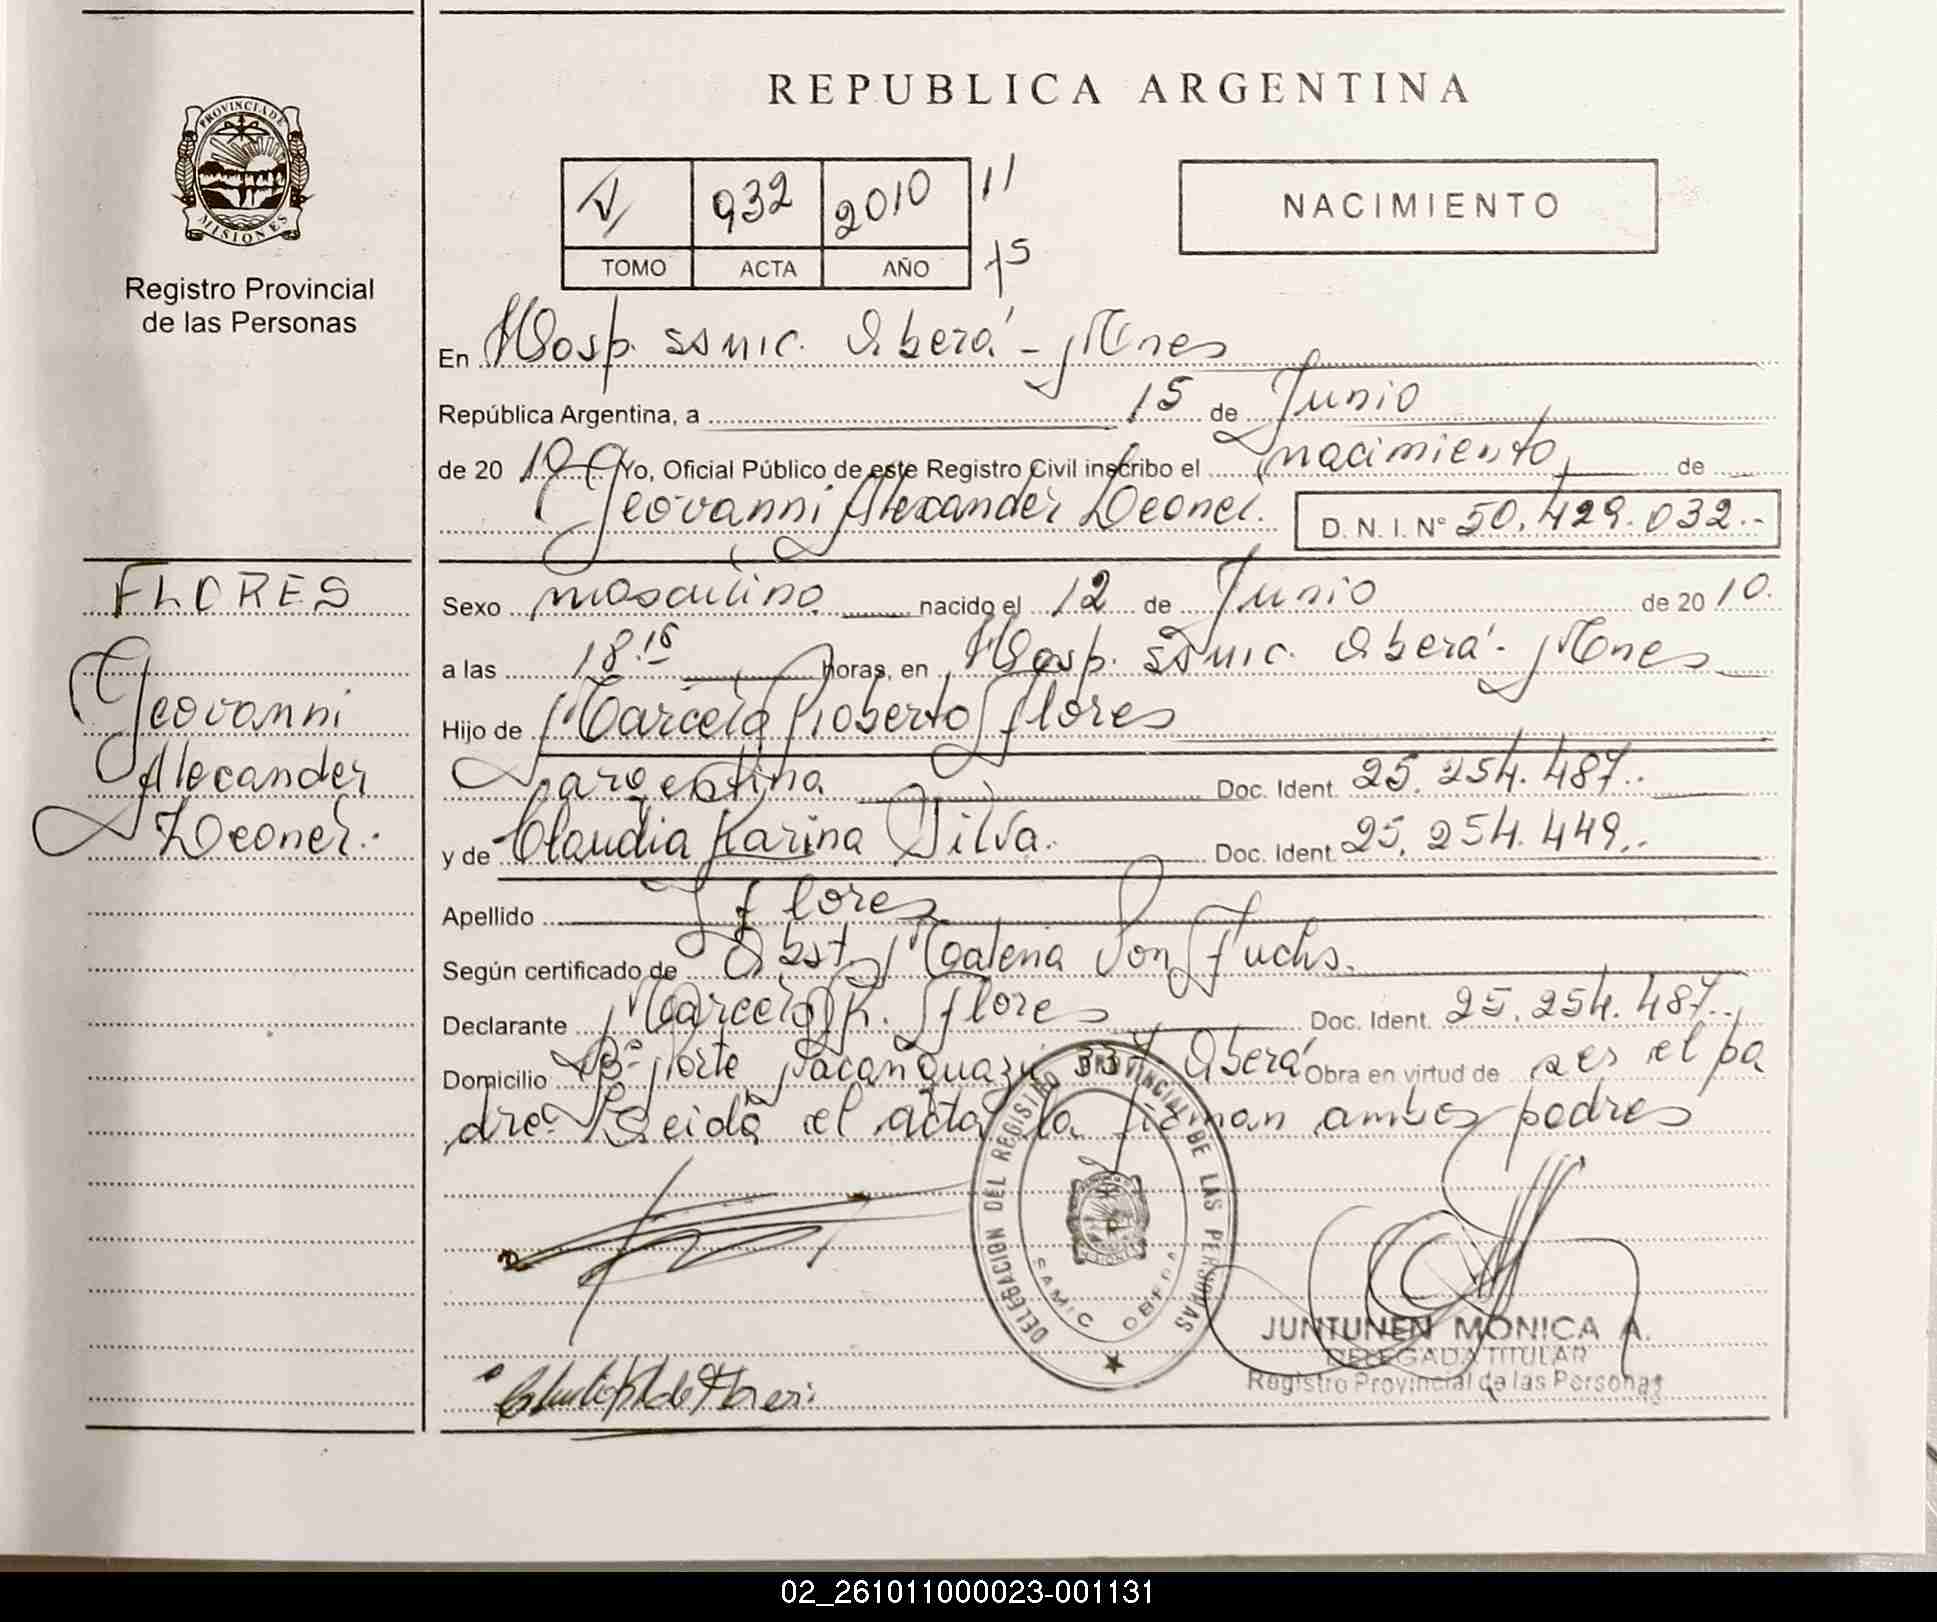 PROVINCIA DE
MISIONES
Registro Provincial
de las Personas
REPUBLICA ARGENTINA
932 2010 11
TOMO ACTA AÑO 15
NACIMIENTO
En Hosp. SAMIC. Oberá - Mnes
República Argentina, a 15 de Junio
de 20 10 Yo, Oficial Público de este Registro Civil inscribo el nacimiento, de
Geovanni Alexander Leonel. D. N. I. Nº 50.429.032.-
FLORES
Geovanni
Alexander
Leonel.
Sexo masculino nacido el 12 de Junio de 20 10.
a las 18.15 horas, en Hosp. SAMIC. Oberá - Mnes
Hijo de Marcelo Roberto Flores
argentina Doc. Ident. 25.254.487..
y de Claudia Karina Silva. Doc. Ident. 25.254.449..
Apellido Flores
Según certificado de Obst. Malena Von Fuchs.
Declarante Marcelo R. Flores Doc. Ident. 25.254.487..
Domicilio Bº Norte 337 Oberá Obra en virtud de ser el pa
dre. Leida el acta la firman ambos padres
DELEGACION DEL REGISTRO PROVINCIAL DE LAS PERSONAS
SAMIC OBERA
JUNTUNEN MONICA A.
DELEGADA TITULAR
Registro Provincial de las Personas
02_261011000023-001131